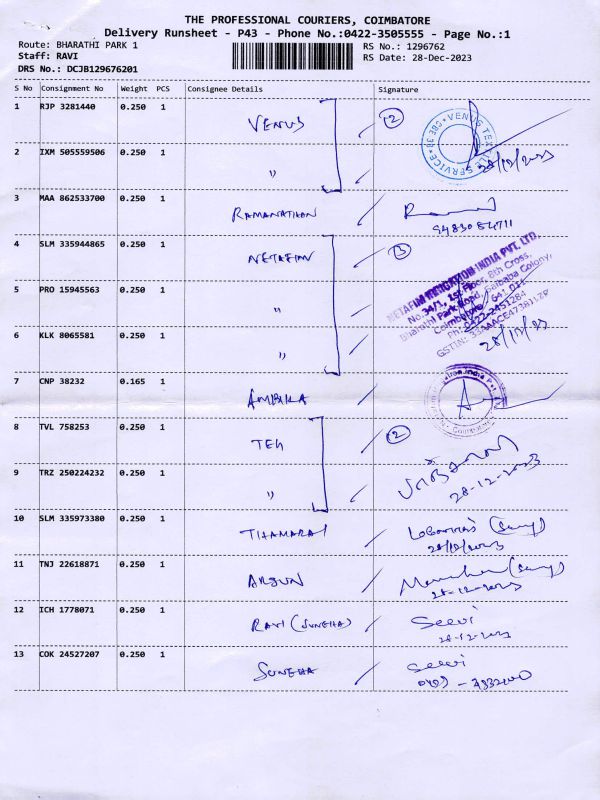 THE PROFESSIONAL COURIERS, COIMBATORE
Delivery Runsheet - P43 - Phone No.:0422-3505555 - Page No.:1
Route: BHARATHI PARK 1 RS No.: 1296762
Staff: RAVI RS Date: 28-Dec-2023
DRS No.: DCJB129676201
S No Consignment No Weight PCS Consignee Details Signature
1 RJP 3281440 0.250 1 VENUS 2
2 IXM 505559506 0.250 1 " 28/12/2023
3 MAA 862533700 0.250 1 RAMANATHAN
4 SLM 335944865 0.250 1 NETAFIM 3
NETAFIM IRRIGATION INDIA PVT. LTD.
No.34/1, 1st Floor, 8th Cross,
Bharathi Park Road, Saibaba Colony,
Coimbatore - 641 011
5 PRO 15945563 0.250 1 "
6 KLK 8065581 0.250 1 "
7 CNP 38232 0.165 1 AMBIKA
8 TVL 758253 0.250 1 TEH 2
9 TRZ 250224232 0.250 1 " 28-12-2023
10 SLM 335973380 0.250 1 THAMARAI
28/12/2023
11 TNJ 22618871 0.250 1 ARJUN
28-12-2023
12 ICH 1778071 0.250 1 RAVI (SUNEHA) Selvi
28-12-2023
13 COK 24527207 0.250 1 SUNEHA Selvi